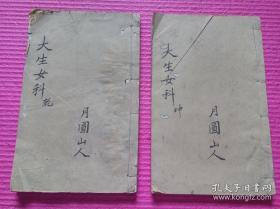 大生女科
乾
月圓山人
大生女科
坤
月圓山人
孔夫子旧书网